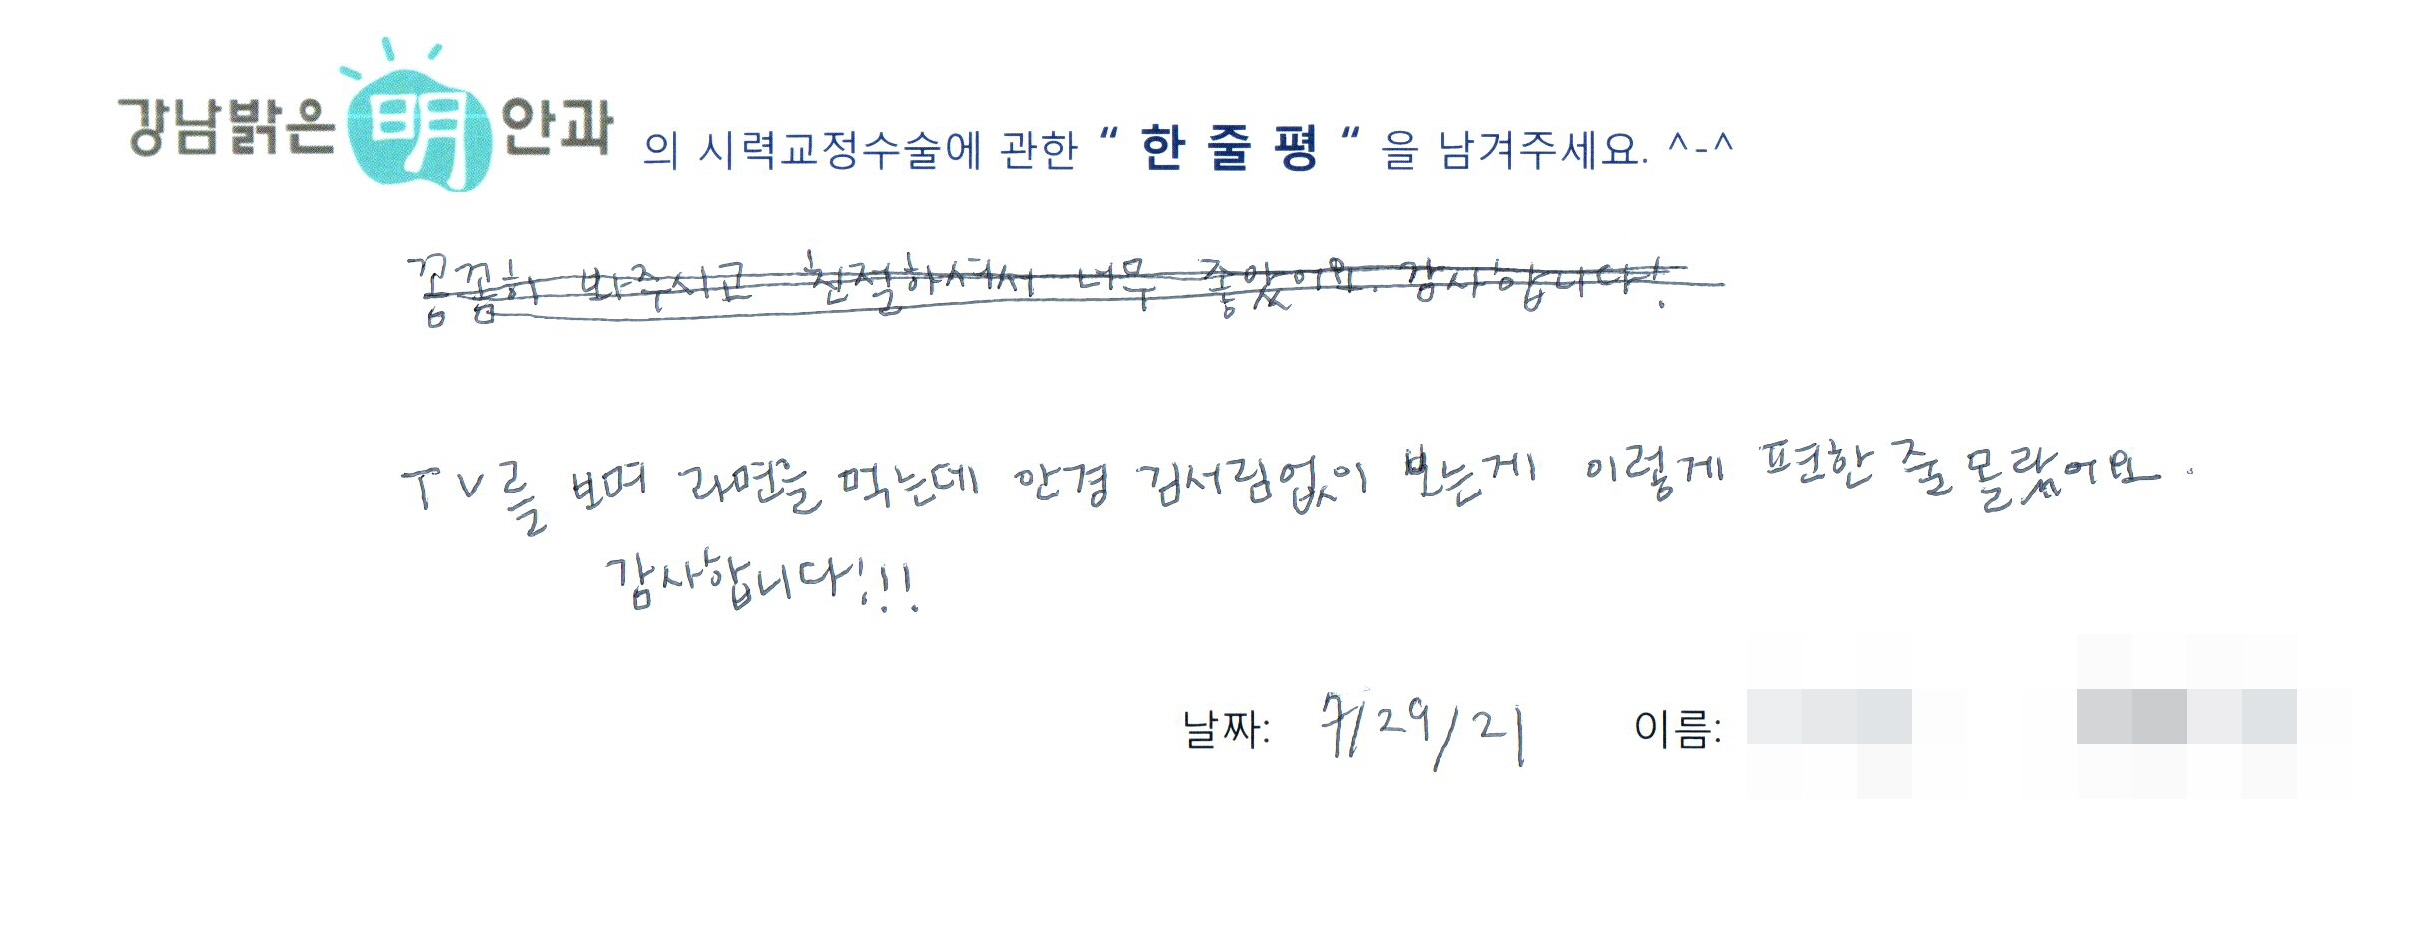 강남밝은 明 안과 의 시력교정수술에 관한 “ 한 줄 평 “ 을 남겨주세요. ^-^
꼼꼼히 봐주시고 친절하셔서 너무 좋았어요. 감사합니다!
TV를 보며 라면을 먹는데 안경 김서림없이 보는게 이렇게 편한 줄 몰랐어요.
감사합니다!!!
날짜: 7/29/21 이름: